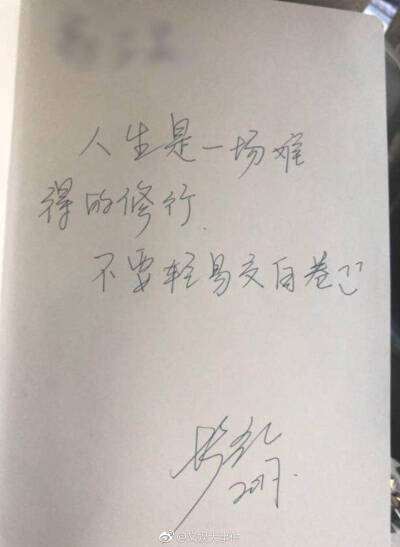 人生是一场难
得的修行.
不要轻易交白卷!!
2017.